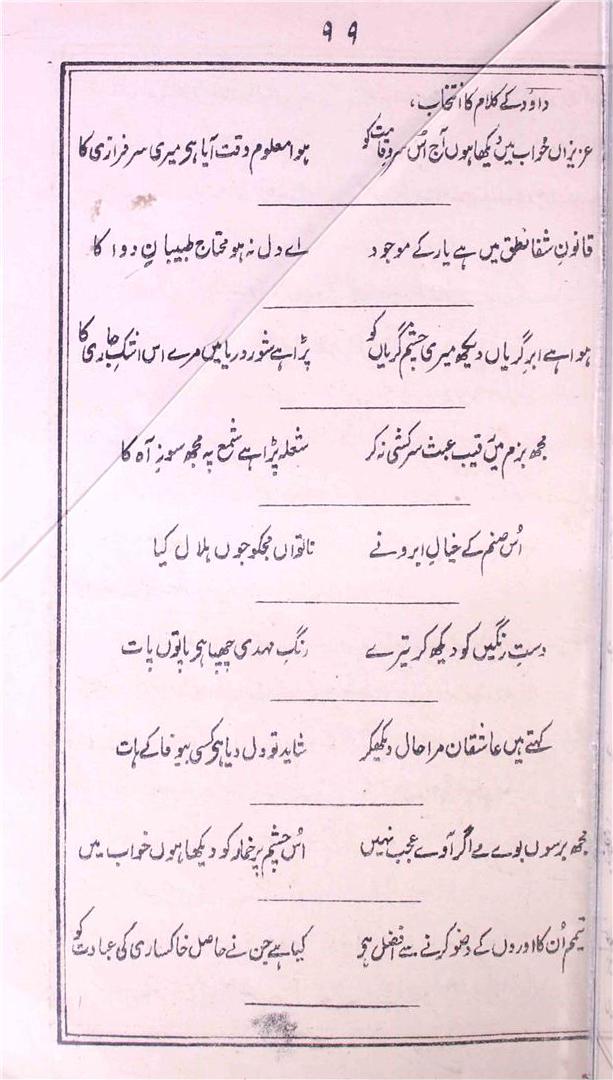 ۹۹
داؤد کے کلام کا انتخاب،
عزیزاں خواب میں دیکھا ہوں آج اُس سرو قامت کو ہوا معلوم وقت آیا ہی میری سرفرازی کا
قانونِ شفا نطق میں ہے یار کے موجود اے دل نہ ہو محتاج طبیبانِ دوا کا
ہوا ہے ابر گریاں دیکھ میری چشمِ گریاں کو پڑا ہے شور دریا میں مرے اس اشک جاری کا
مجھ بزم میں رقیب عبث سرکشی نہ کر شعلہ پڑا ہے شمع پہ مجھ سوزِ آہ کا
اُس صنم کے خیالِ ابرو نے ناتواں مجکو جوں ہلال کیا
دستِ رنگیں کو دیکھ کر تیرے رنگِ مہدی چھپا ہی پاتوں پات
کہتے ہیں عاشقاں مرا حال دیکھکر شاید تو دل دیا ہی کسی بیوفا کے ہات
مجھ برسوں بوے مے اگر آوے عجب نہیں اُس چشمِ پر خمار کو دیکھا ہوں خواب میں
تیمم اُن کا اوروں کے وضو کرنے سے افضل ہی کیا ہے جن نے حاصل خاکساری کی عبادت کو